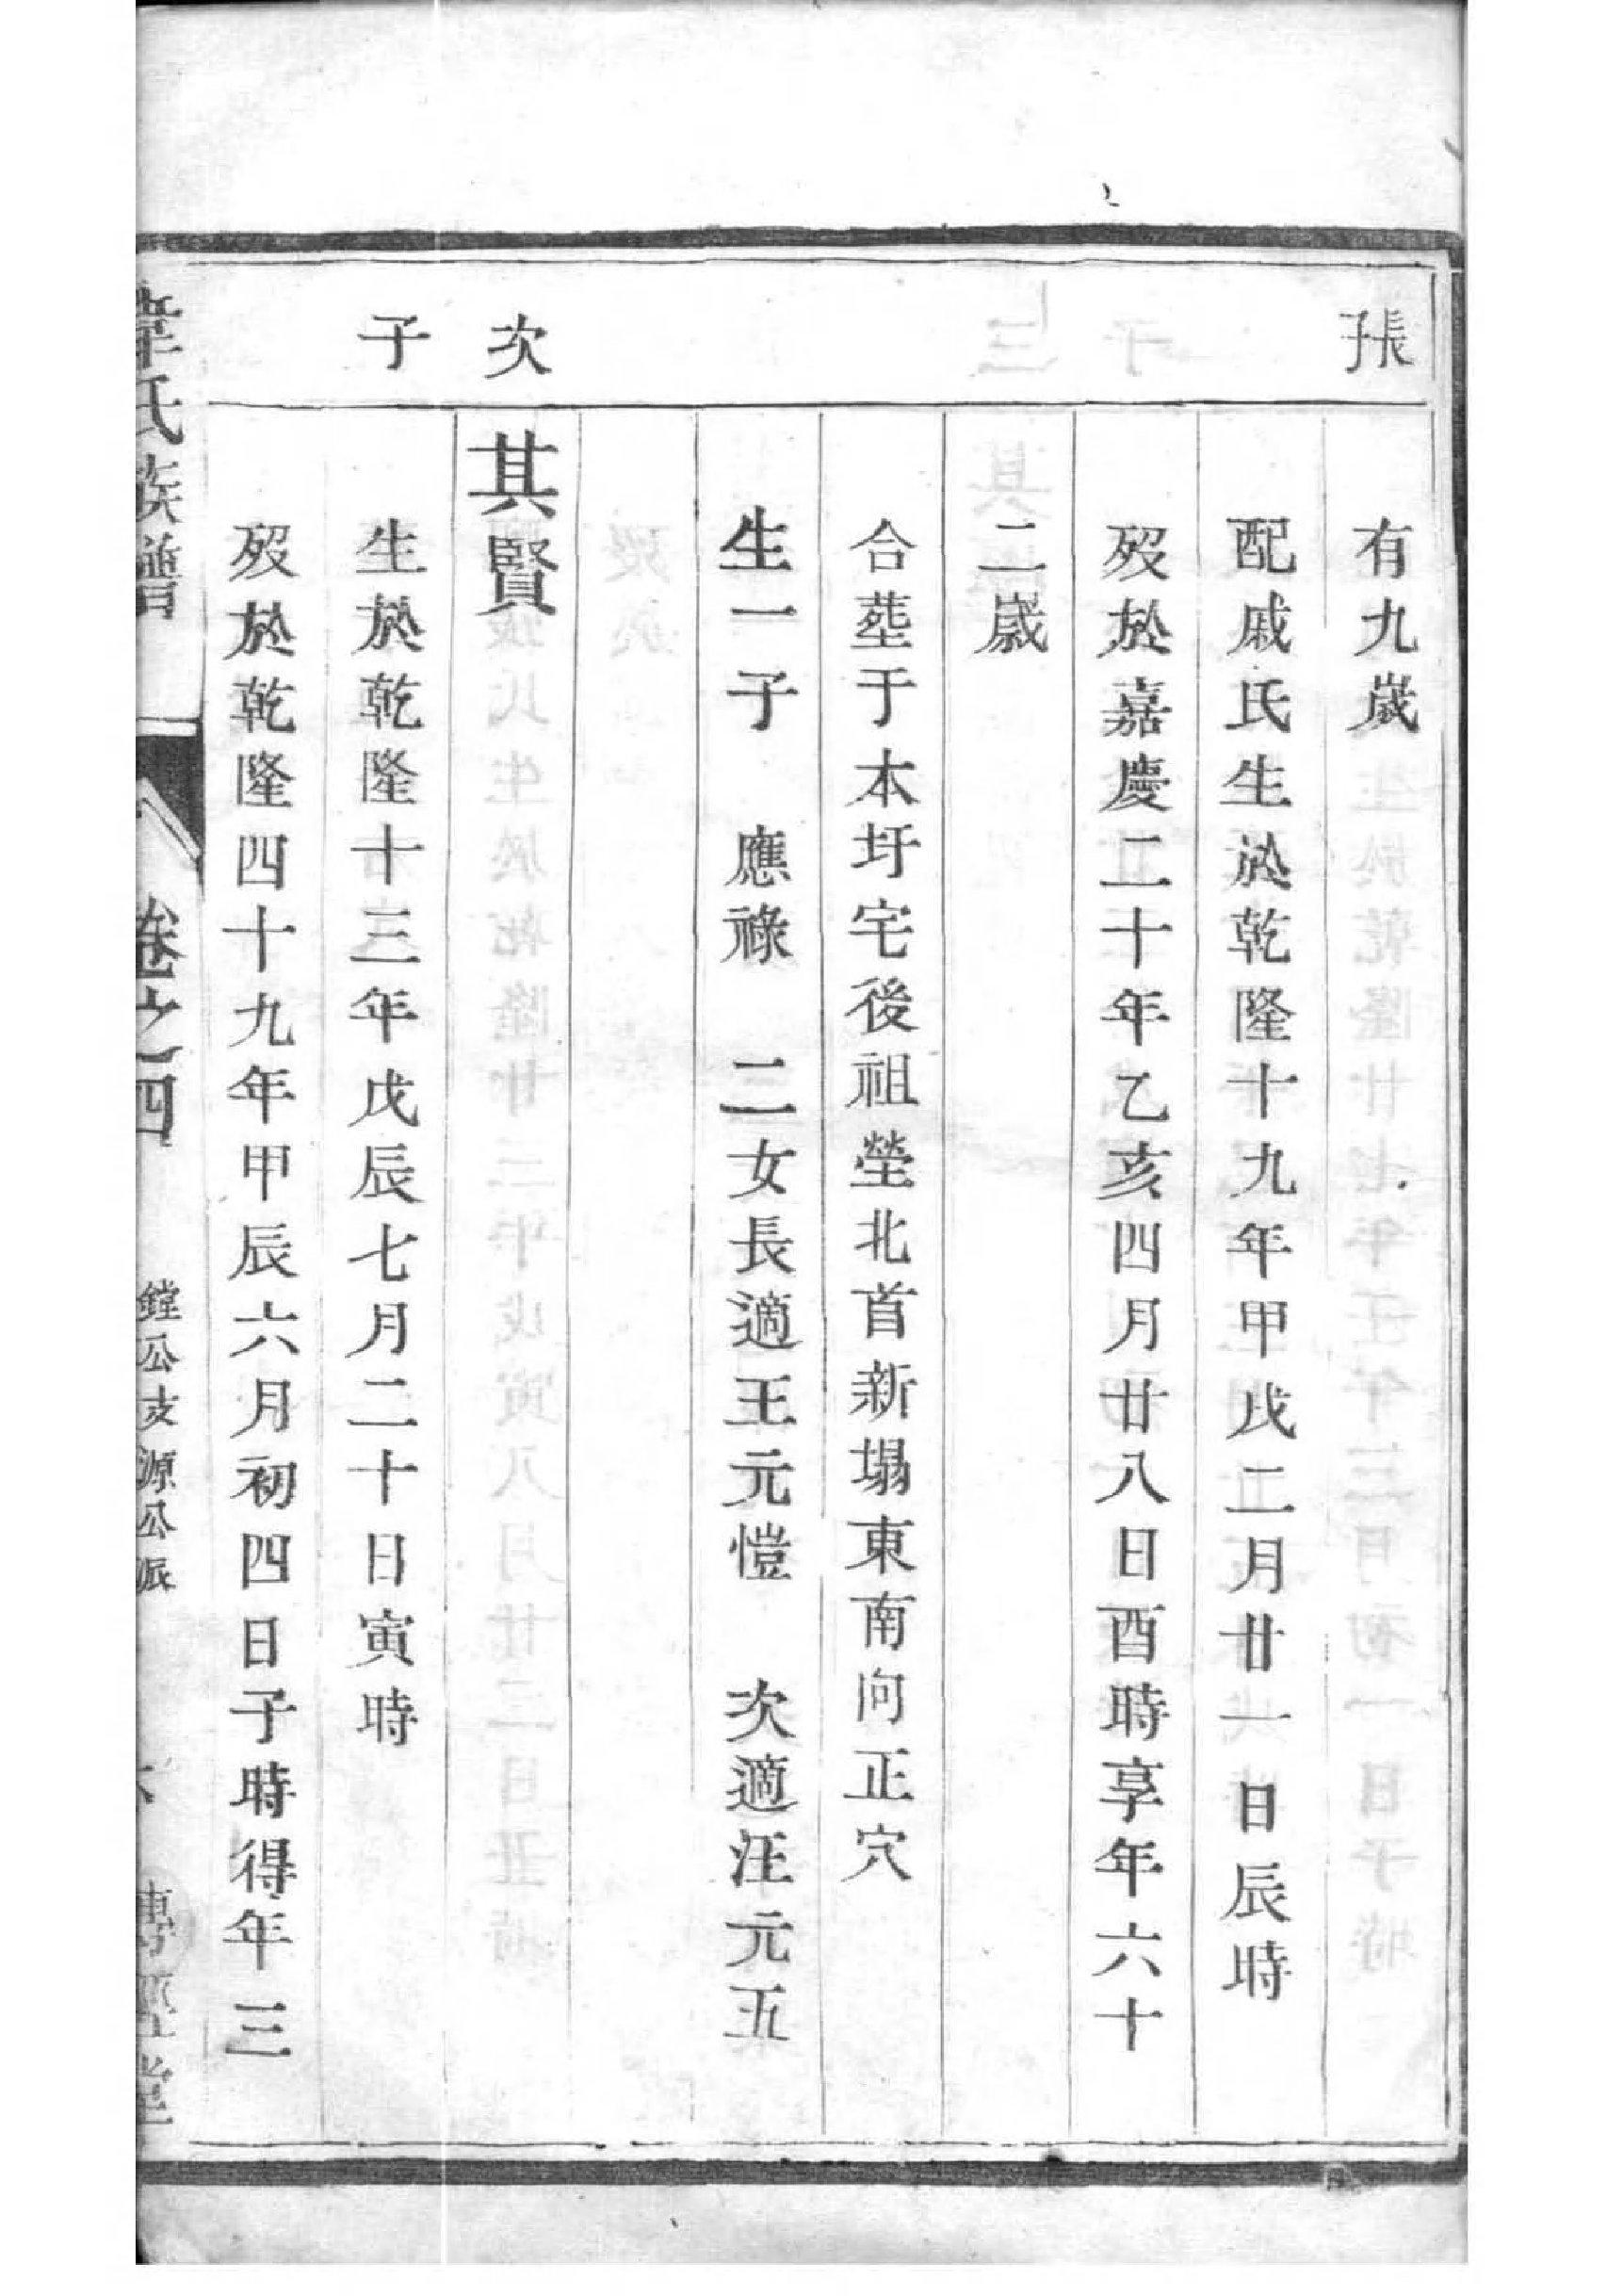 張子
有九歲
配戚氏生於乾隆十九年甲戌二月廿一日辰時
歿於嘉慶二十年乙亥四月廿八日酉時享年六十
二歲
合塟于本圩宅後祖塋北首新塌東南向正穴
生一子 應祿 二女長適王元愷 次適汪元五
次子
其賢
生於乾隆十三年戊辰七月二十日寅時
歿於乾隆四十九年甲辰六月初四日子時得年三
韋氏族譜 卷之四 鏜公支源公派 專經堂